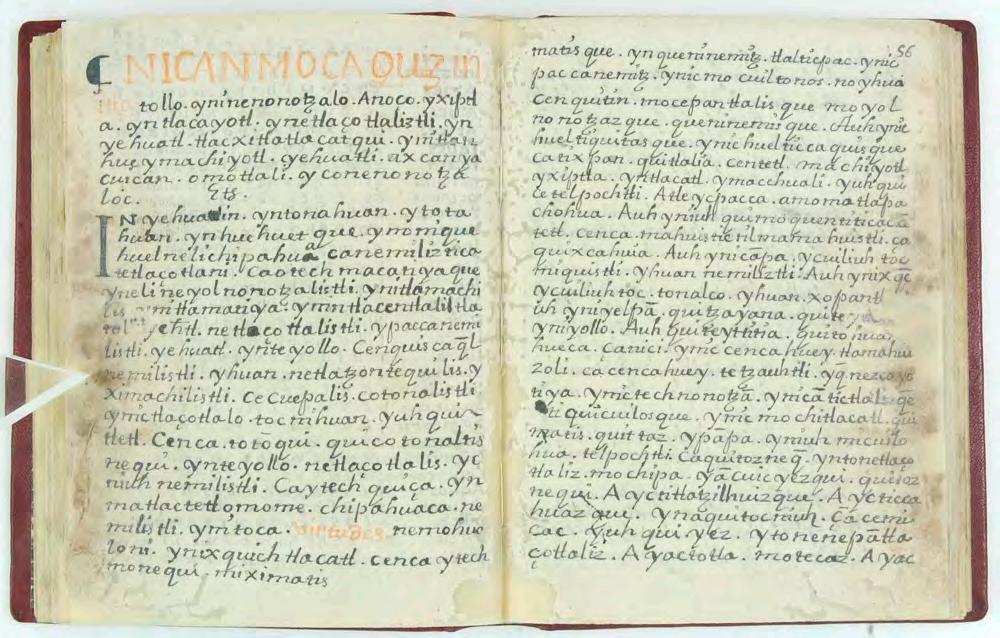 NICAN MOCAQUIZ in
itla tollo. yninenonotzalo. Anoço. yxiptl
a. yn tlaçayotl. ynetlaçotlaliztli. yn
yehuatl. tlacxitlatlacatqui. ymtlan
hue ymachiyotl. yehuatli. axcan ya
cuican. omotlali. yconenonotza
loc. Ets.
IN yehuatlin. yntonahuan. ytota
huan. yn huehuetque. ynomique
huelnelichipahua canemiliztica
tetlaçotlani. Caotech macatiyaque
yneli neyolnonotzalistli. ynitlamachi
lis ymtlamatiya. ymntlacentlalilstla
yehtl. netlaçotlalistli. ypaccanemi
listli. yehuatl. ynteyollo. Cenquisca ql
nemilistli. yhuan. netlatzontequilis. y
ximachilistli. Cecuepalis. cotonalistli
ymc tlaçotlalo. tocmihuan. yuhquin
tletl. Cenca. totoqui. quicotonaltis
nequi. ynteyollo. netlaçotlalis. yc
niuh nemilistli. Caytech quiça. yn
matlactetlomome. chipahuaca. ne
milistli. ymtoca. virtudes. nemohue
loni. ynixquich tlacatl. cenca ytech
monequi. miximatis
56
matis que. yn queninemitz. tlalticpac. ynic
paccanemitz. ynic mocuiltonos. noyhua
cenquitin. mocepantlalis que moyol
nonotzaz que. queninemis que. Auh ynic
huel tiquitas que. ynic huel ticcaquisque
catixpan. quitlalia. centetl. machiyotl
yxiptla. yntlacatl. ymacchuali. yuhqui
cetelpochtli. Atleycpacca. amomatlapa
chohua. Auh yniuh quimoquentiticaca
tetl. cenca. mahuistic tilmama huistli. ca
quixcahuia. Auh ynicapa. ycuiliuhtoc
miquistli. yhuan nemiliztli. Auh ynix qc
ycuiliuhtoc. tonalco. yhuan. xopantl
auh yniyelpa. quitzayana. quite
yniyollo. Auh quiteyttitia. quitohua
hueca. canici. ynic cenca huey. tlamahui
zoli. cacencahuey. tetzauhtli. yq nezcayo
tiya. ymc technonotza. ynica tictlalis qe
tiquicuilosque. ynic mochitlacatl. qui
matis. quittaz. ypapa. yniuh micuilo
hua. telpochtli. Caquitozne q. yntonetlaço
tlaliz. mochipa. yacuicyezqui. quitoz
nequi. Ayctitlatzilhuizque. Aycticca
huazque. ynaquitocniuh. Ca cemi
cac. yuhqui yez. ytonenepatla
çotlaliz. Ayactotla. motecaz. Ayac